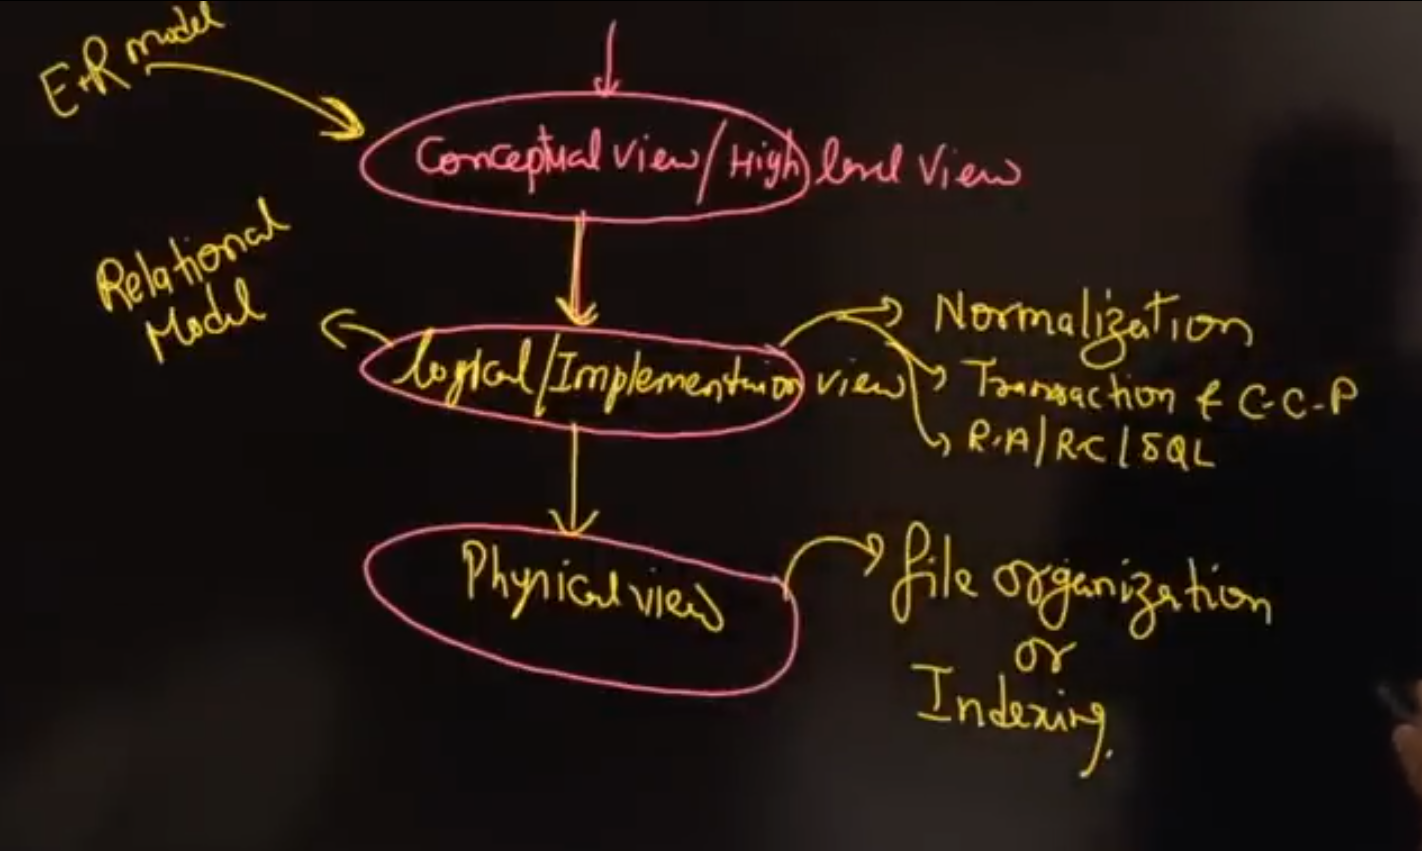 E-R model
Conceptual view/High level View
Relational
Model
logical/Implementation view
Normalization
Transaction & C-C-P
R.A/RC/SQL
Physical view
file organization
or
Indexing.